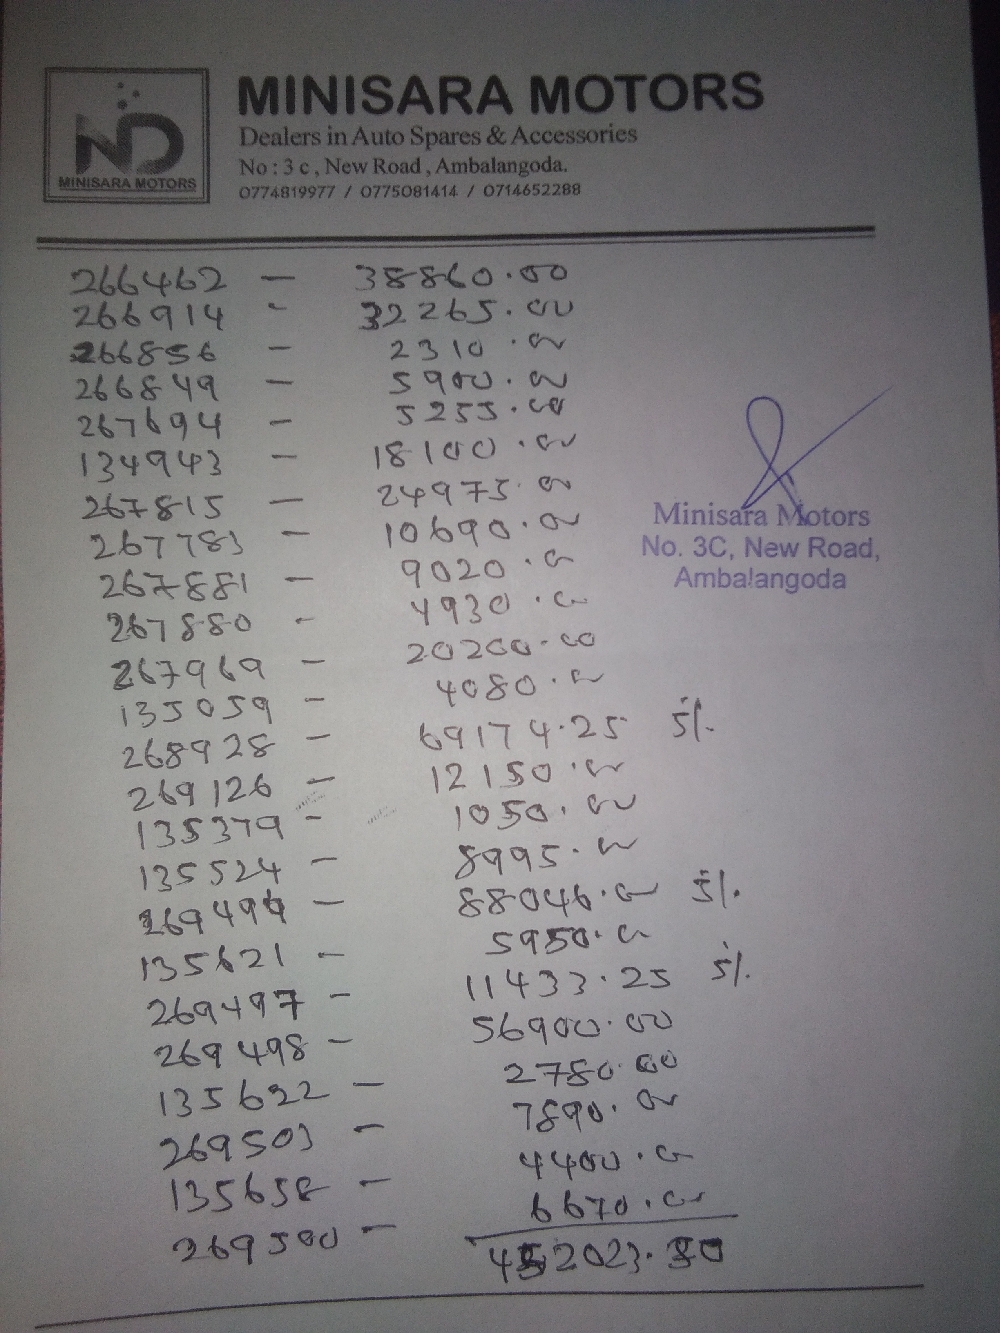 ND
MINISARA MOTORS
MINISARA MOTORS
Dealers in Auto Spares & Accessories
No : 3 c , New Road , Ambalangoda.
0774819977 / 0775081414 / 0714652288
266462 – 38860.00
266914 - 32265.00
266856 – 2310.00
266849 – 5900.00
267694 – 5255.00
134943 – 18100.00
267815 – 24975.00
267783 – 10690.00
267881 – 9020.00
267880 - 4930.00
267969 – 20200.00
135059 – 4080.00
268928 – 69174.25 5%
269126 – 12150.00
135379 - 1050.00
135524 – 8995.00
269494 – 88046.00 5%
135621 – 5950.00
269497 – 11433.25 5%
269498 – 56900.00
135622 – 2780.00
269503 – 7890.00
135658 – 4400.00
269500 – 6670.00
452023.50
Minisara Motors
No. 3C, New Road,
Ambalangoda